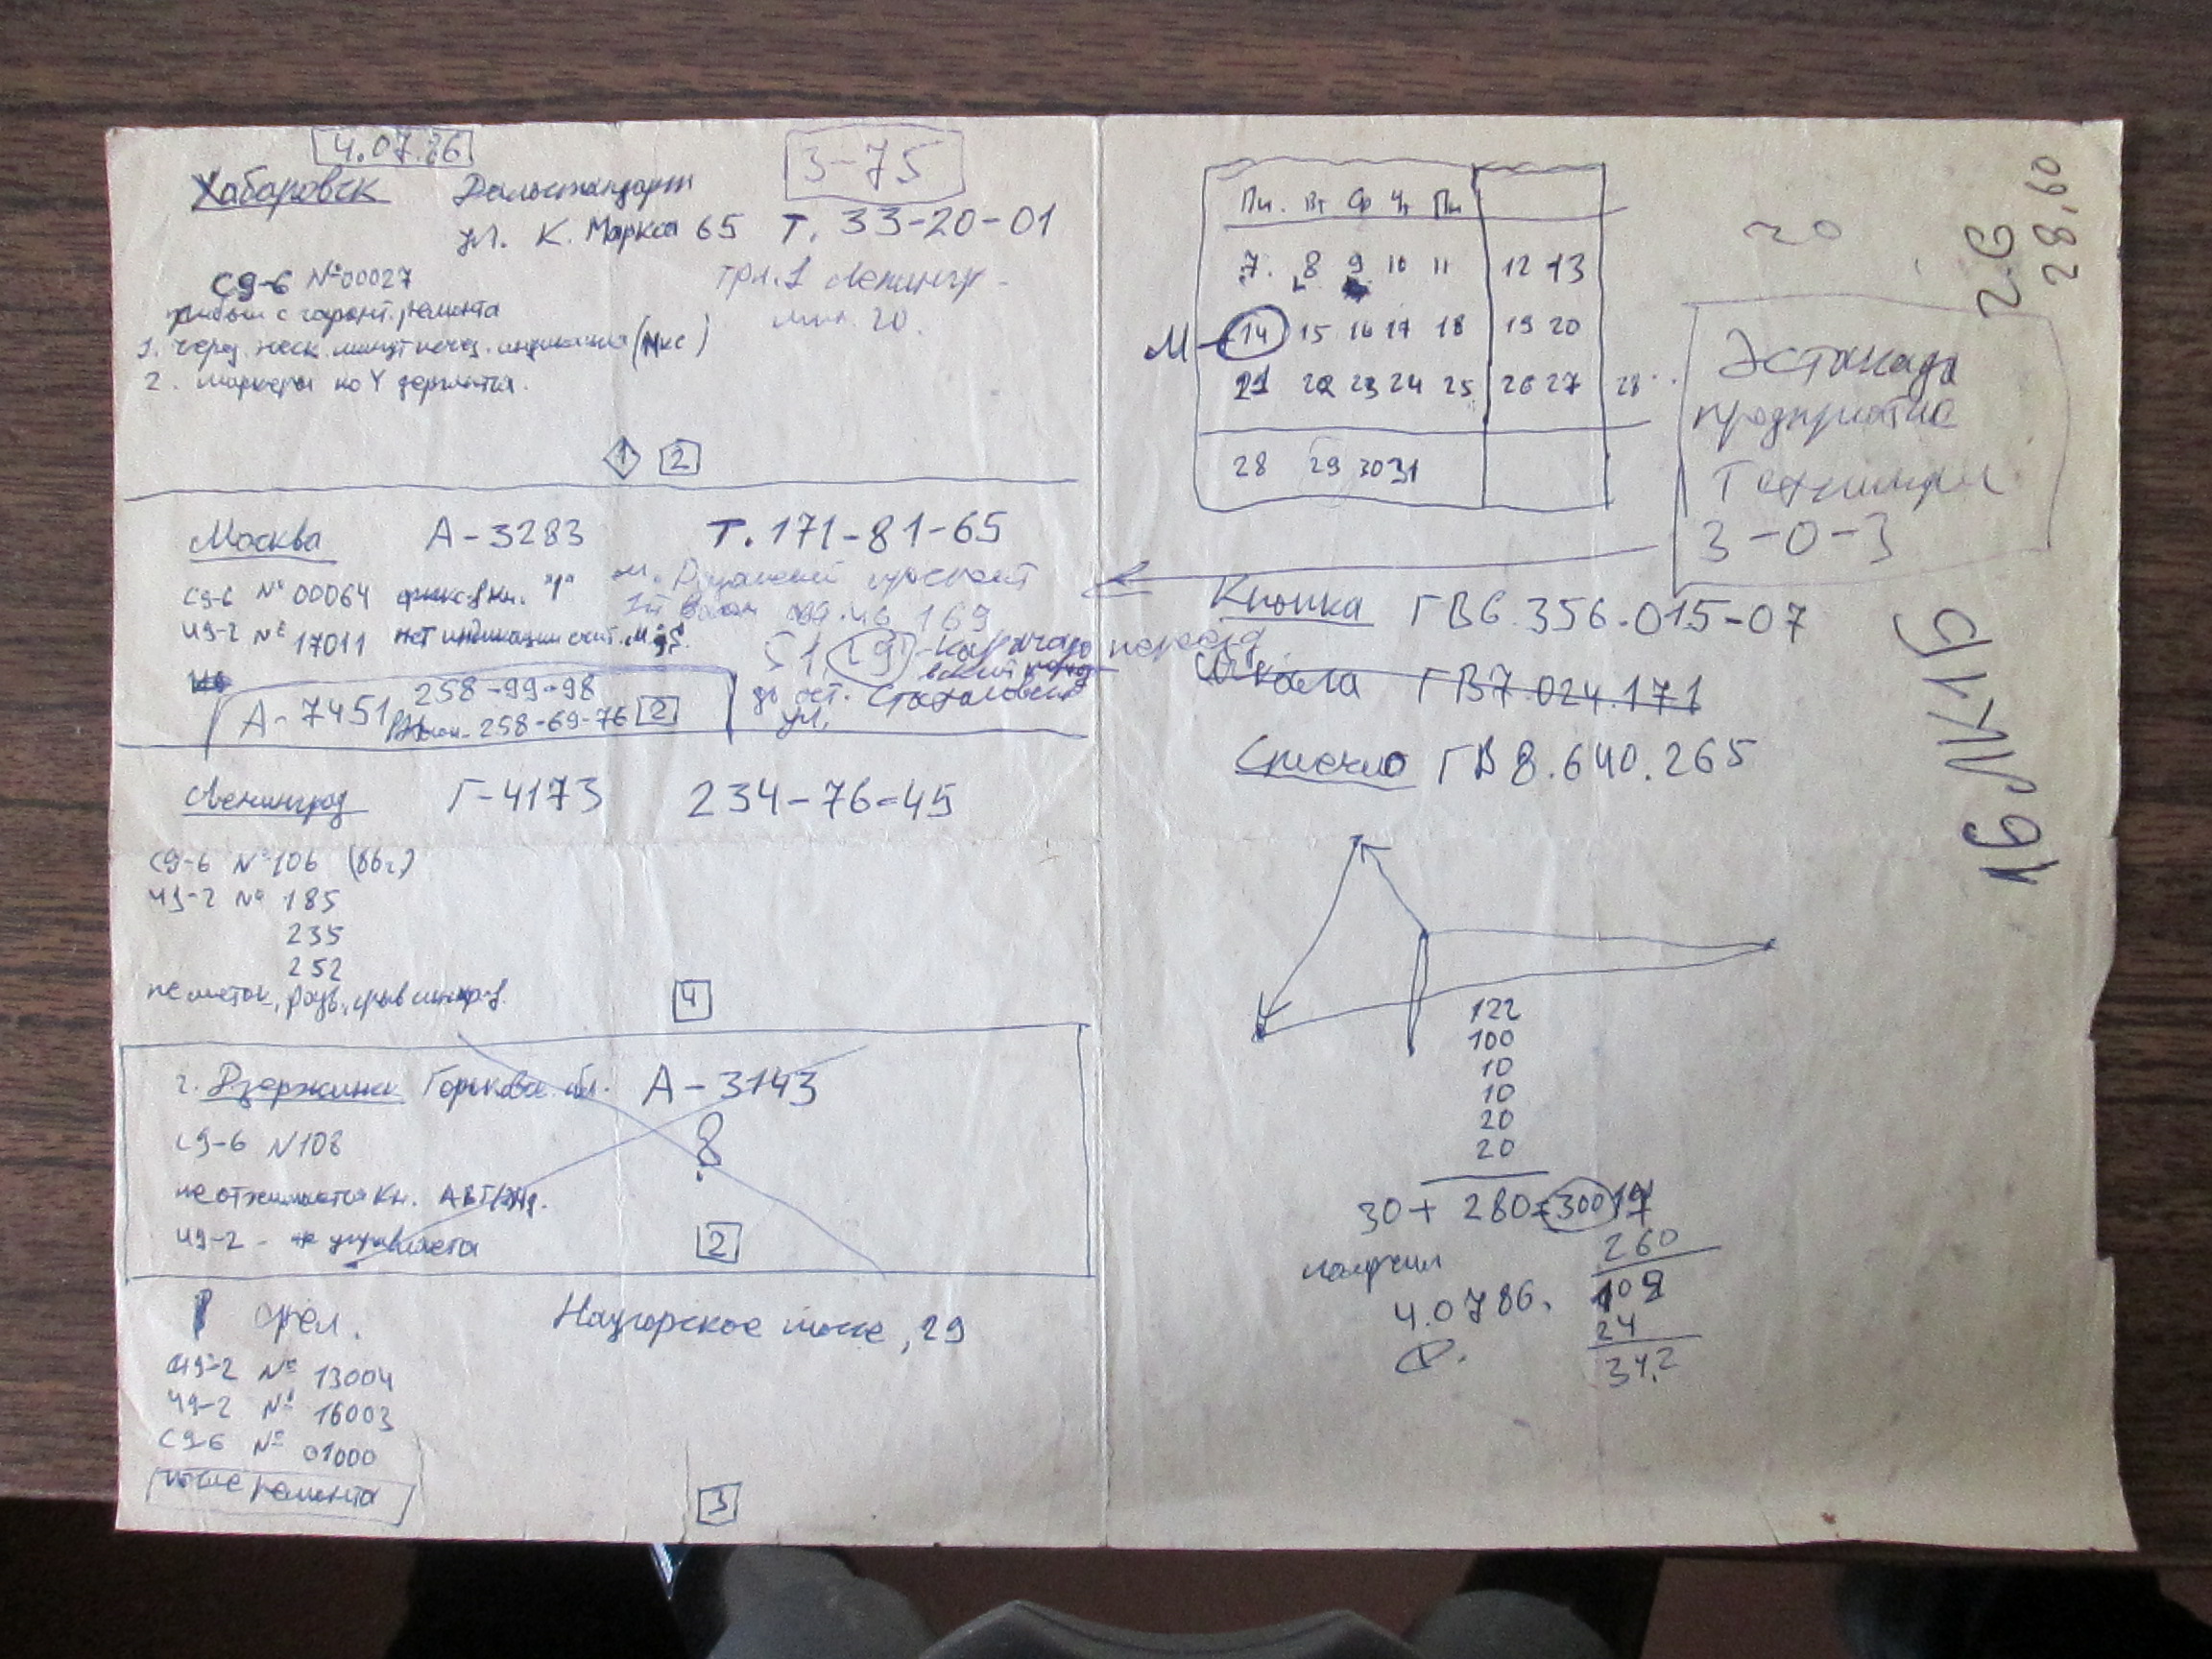 4.07.86
3-75
Хабаровск Дальстандарт
ул. К. Маркса 65 т. 33-20-01
С9-6 №00027
тр.л.1 Ленингр.
20.
прибыл с гарант. ремонта
1. через неск. минут исчез. индикация (Мкс)
2. маркеры по Y
1 2
Москва А-3283 т. 171-81-65
м. Рязанский проспект
С9-6 № 00064 фикс-я кн. "1"
169
Ч9-2 № 17011 нет индикации
51 (29)
проезд
до ост. Стахановская
ул.
А-7451 258-99-98
258-69-76 2
Ленинград Г-4173 234-76-45
С9-6 №106 (86г.)
Ч9-2 № 185
235
252
4
г. Дзержинск Горьков. обл. А-3143
С9-6 N108
8
не отжимается кн.
Ч9-2 - не управляется
2
Орёл. Наугорское шоссе, 29
Ч9-2 № 13004
Ч9-2 № 16003
С9-6 № 01000
после ремонта
3
Пн. Вт Ср Чт Пн
7. 8 9 10 11 12 13
М 14 15 16 17 18 19 20
21 22 23 24 25 26 27 28
28 29 30 31
20
26
28,60
Эстакада
предприятие
3-0-3
Кнопка ГВ6.356.015-07
Шкала ГВ7.024.171
Стекло ГВ 8.640.265
122
100
10
10
20
20
30 + 280 = 300
260
получил
109
4.0786.
24
34,2